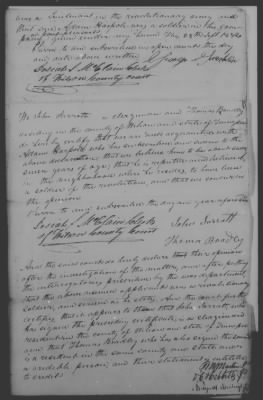 was a lieutenant in the revolutionary army and
that Adam Harpole was a soldier in his com
pany
Sworn to and subscribed in open court the day
and date above written George D
Josiah S. McClain Clerk
of Wilson County Court
We John Jarratt a clergyman and Thomas Bradley
residing in the county of Wilson and state of Tennessee
do hereby certify that we are well acquainted with
Adam Harpole who has subscribed and sworn to the
above declaration that we believe him to be
seven years of age; that he is reputed and believed
in the neighbourhood where he resides, to have been
a soldier of the revolution, and that we concur in
the opinion
Sworn to and subscribed the day and year aforesaid
Josiah S. McClain Clerk John Jarratt
of Wilson County Court
Thomas Bradley
And the said court do hereby declare their opinion
after the investigation of the matter, and after putting
the interrogatories prescribed by the war department
that the above named applicant was a revolutionary
soldier, and served as he states. And the court further
certifies that it appears to them that John Jarratt who
has signed the preceding certificate is a clergyman
resident in the county of Wilson and state of Tennessee
and that Thomas Bradley who has also signed the same
is a resident in the same county and state and is
a credible person and their statement is entitled
to credit